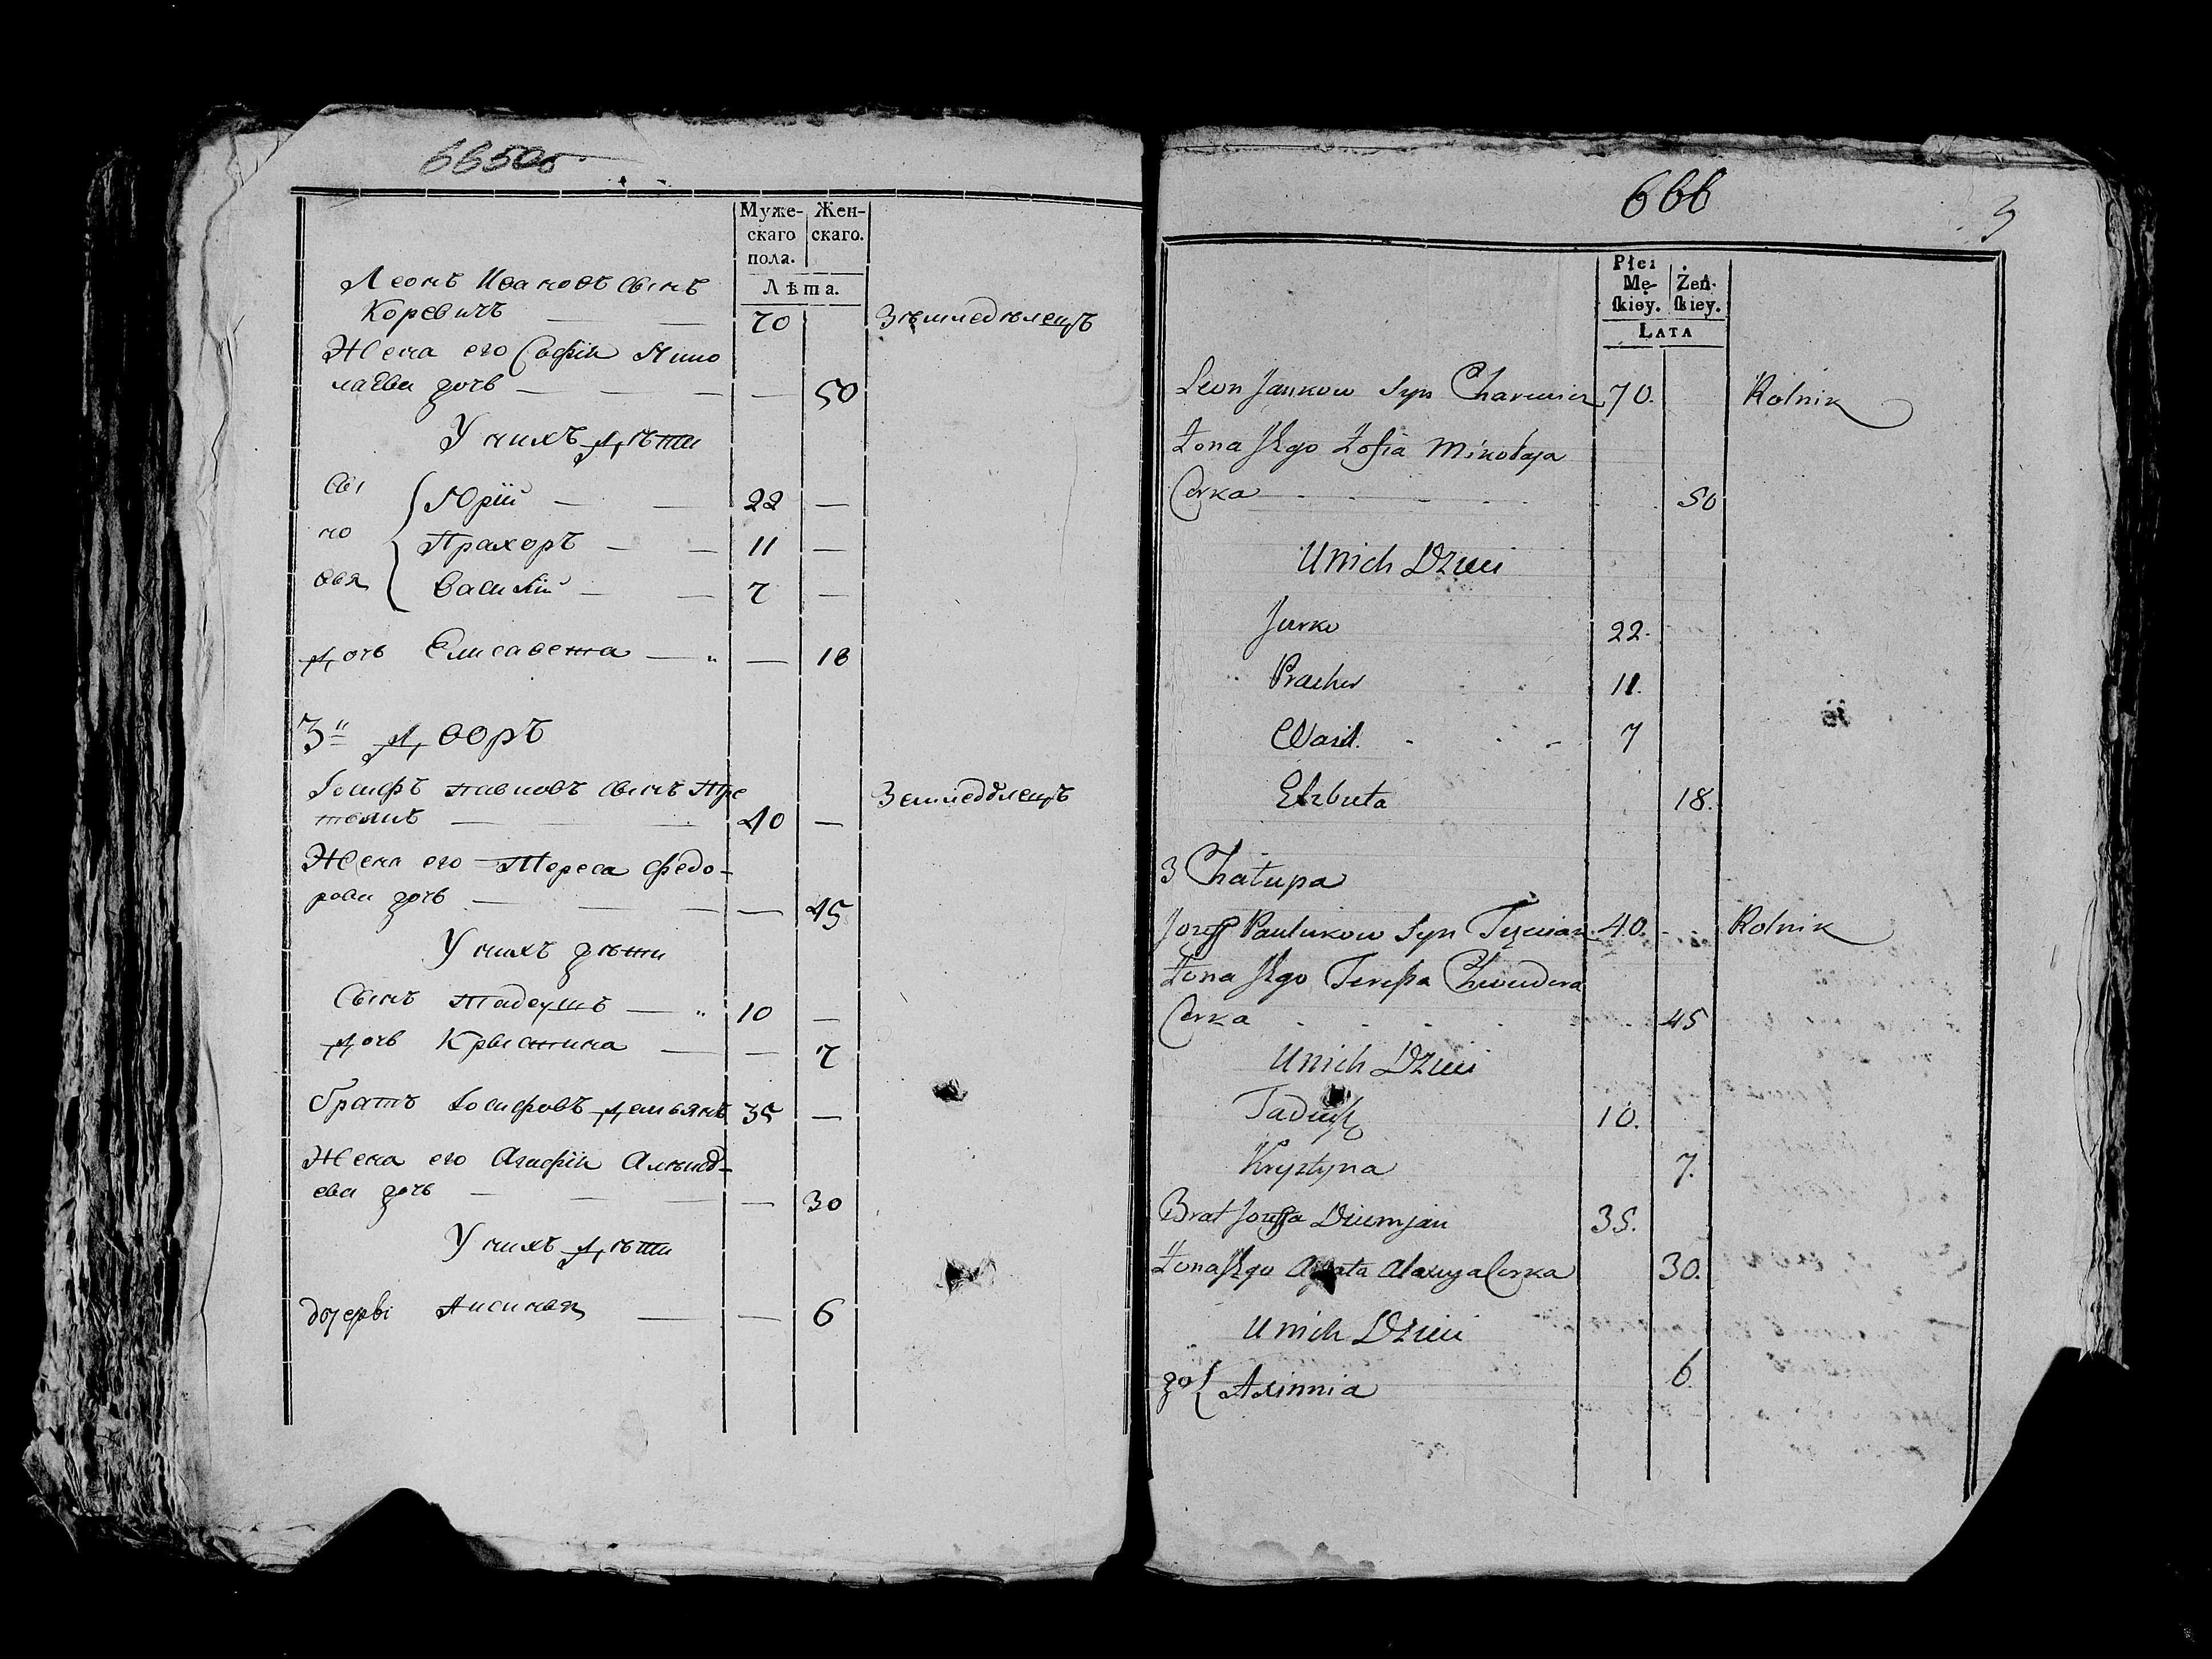 665об
Муже-
скаго
пола.
Жен-
скаго.
Лѣта.
Леонъ Ивановъ сынъ
Коревичъ — — 70 Земледѣлецъ
Жена его Софія Мико
лаева дочь — — — — 50
У нихъ дѣти
Сы
но
вья
Юрій — — 22 —
Прахоръ — — 11 —
Василій — — 7 —
дочь Елисавета — „ — 18
3й дворъ
Іосифъ павловъ сынъ
— — 40 — Земледѣлецъ
Жена его Тереса федо-
рова дочь — — — — 45
У нихъ дѣти
Сынъ тадеушъ — „ 10 —
дочь Крыстина — — 7
братъ Іосифовъ демьянъ 35 —
Жена его Агафія
ева дочь — — — — 30
У нихъ дѣти
дочерьі — — 6
666
3
Płci
Mę-
skiey.
Żeń-
skiey.
LATA
Leon Jankow Syn 70. Rolnik
Żona Jego Zofia Mikołaja
Corka 50
Unich Dzieci
Jurko 22.
Prachor 11.
Wasil. 7
Elzbieta 18.
3 Chałupa
Jozeff Paulukow Syn 40. Rolnik
Żona Jego Teressa Chwiedora
Corka 45
Unich Dzieci
Tadeusz 10.
Krystyna 7.
Brat Jozeffa Dziemjan 35.
Żona Jego Agata Alaxieja Corka 30.
Unich Dzieci
до { Axinnia 6.